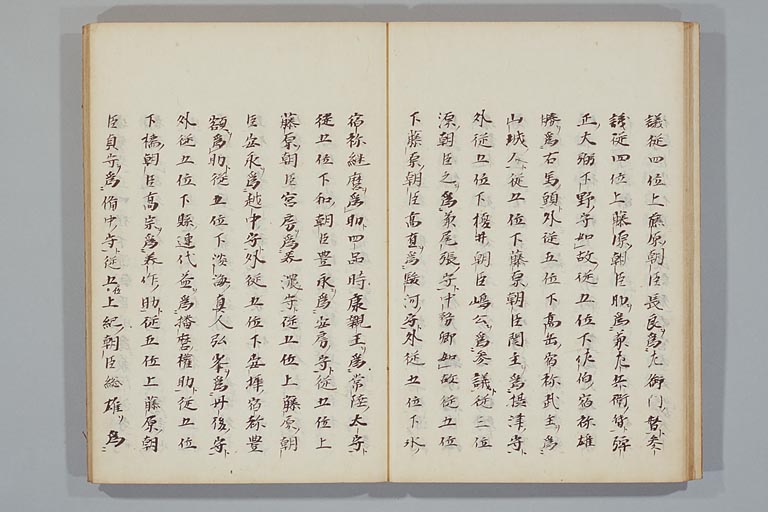 議従四位上藤原朝臣長良爲左衛門督参
議従四位上藤原朝臣助爲兼左兵衛督弾
正大弼下野守如故従五位下佐伯宿祢雄
勝爲右馬頭外従五位下高岳宿祢武主爲
山城介従五位下藤原朝臣関主爲摂津守
外従五位下榎井朝臣嶋公爲参議従三位
源朝臣定爲兼尾張守中務卿如故従五位
下藤原朝臣高直爲駿河守外従五位下
宿祢継麿爲助四品時康親王爲常陸太守
従五位下和朝臣豊永爲安房守従五位上
藤原朝臣宮房爲美濃守従五位上藤原朝
臣安永爲越中守外従五位下安墀宿祢豊
額爲助従五位下淡海真人弘岑爲丹後守
外従五位下縣連代益爲播磨権助従五位
下橘朝臣高宗爲美作助従五位上藤原朝
臣貞守爲備中守従五位上紀朝臣総雄爲